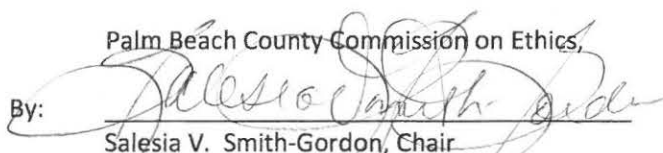 Palm Beach County Commission on Ethics,
By: Salesia V Smith-Gordon
Salesia V. Smith-Gordon, Chair